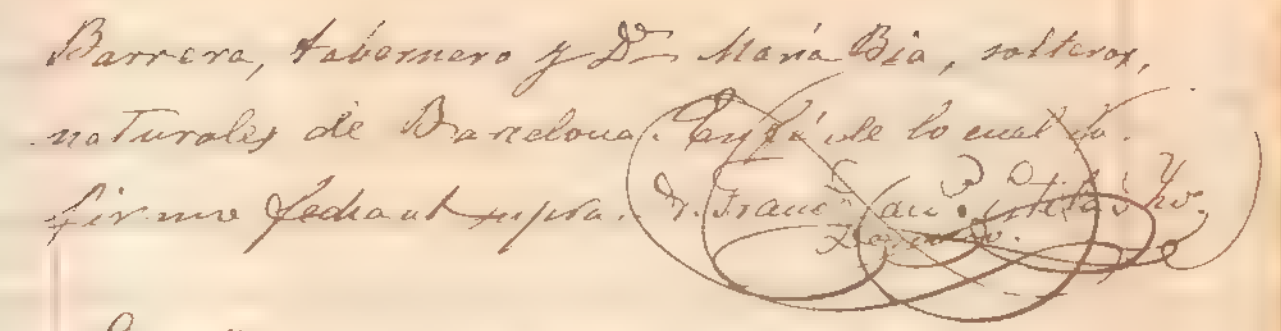 Barrera, tabernero y Dª María Bia, solteros,
naturales de Barcelona. En fé de lo cual lo
firmo fecha ut supra. D. Franc